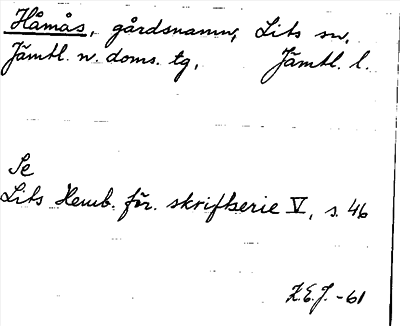 Håmås, gårdsnamn, Lits sn,
Jämtl. n. doms. tg, Jämtl. l.
Se
Lits Hemb. för. skriftserie V, s. 46
K.E.J. -61